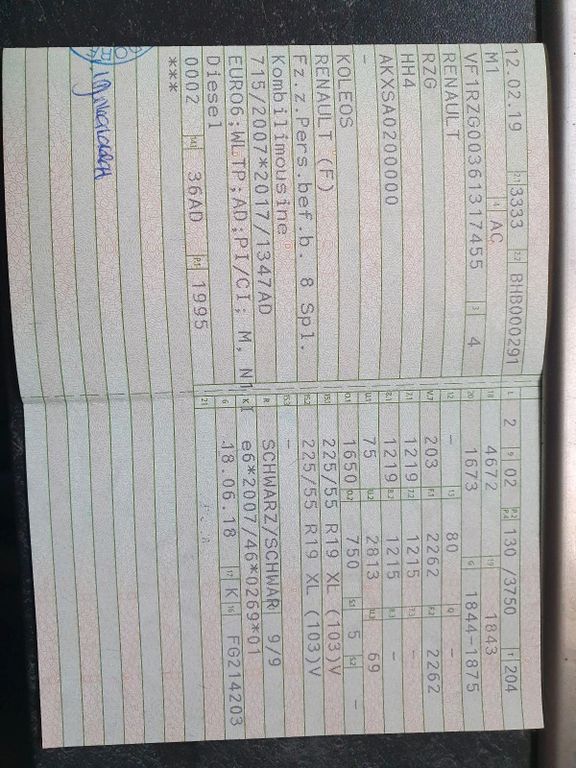 12.02.19 2.1 3333 2.2 BHB000291
M1 4 AC
VF1RZG00361317455 3 4
RENAULT
RZG
HH4
AKXSA0200000
-
KOLEOS
RENAULT (F)
Fz.z.Pers.bef.b. 8 Spl.
Kombilimousine
715/2007*2017/1347AD
EURO6;WLTP;AD;PI/CI; M, N1 I
Diesel
0002 14.1 36AD P.1 1995
***
L 2 9 02 P.2 P.4 130 /3750 T 204
18 4672 19 1843
20 1673 G 1844-1875
12 - 13 80 Q -
V.7 203 F.1 2262 F.2 2262
7.1 1219 7.2 1215 7.3 -
8.1 1219 8.2 1215 8.3 -
U.1 75 U.2 2813 U.3 69
O.1 1650 O.2 750 S.1 5 S.2 -
15.1 225/55 R19 XL (103)V
15.2 225/55 R19 XL (103)V
15.3 -
R SCHWARZ/SCHWAR 9/9
K e6*2007/46*0269*01
6 18.06.18 17 K 16 FG214203
21